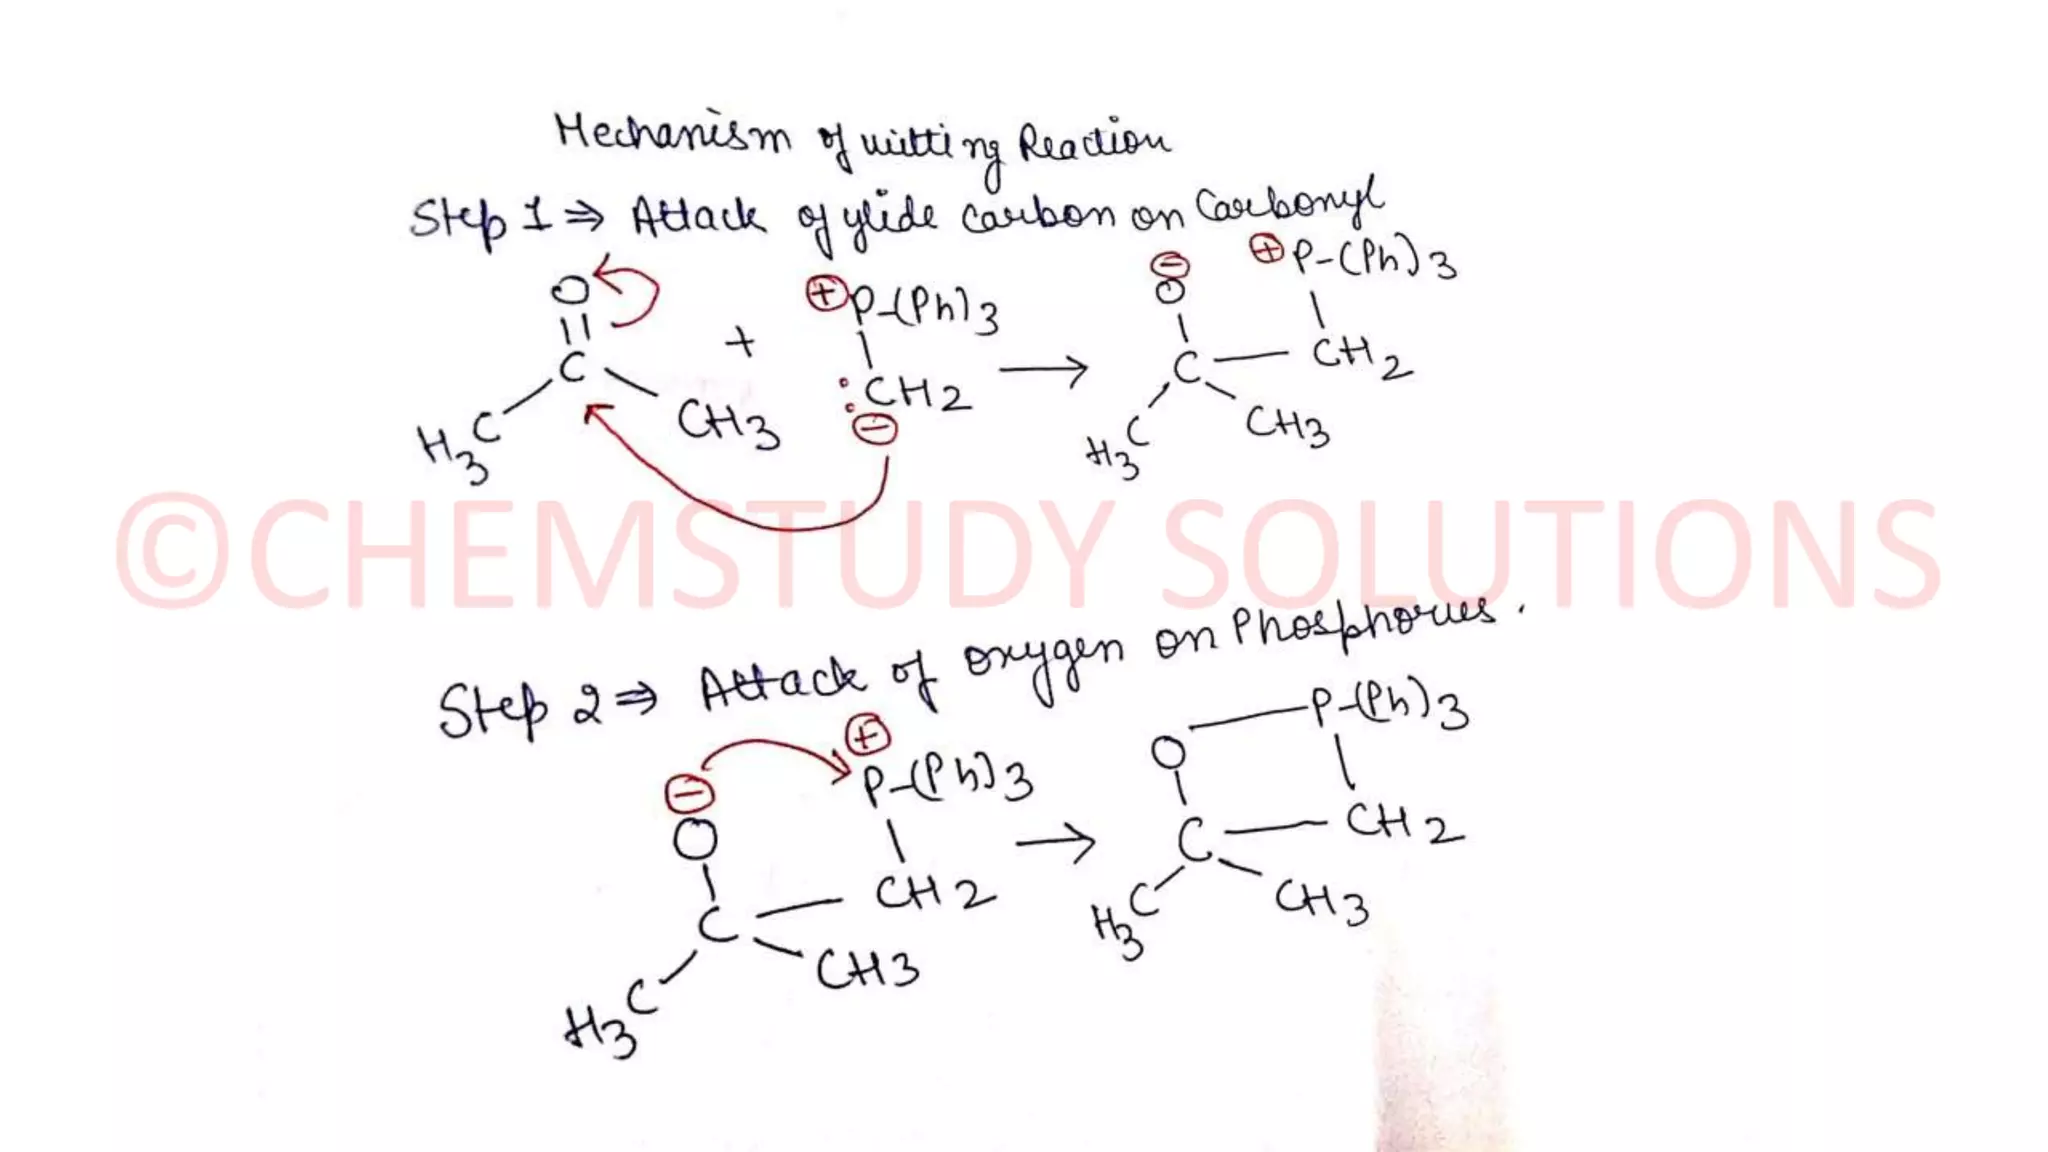 Mechanism of witting Reaction
Step 1 ⇒ Attack of ylide carbon on Carbonyl
⊖ ⊕ P-(Ph)3
O ⊕ P-(Ph)3 O
C + :CH2 → C CH2
H3C CH3 ⊖ H3C CH3
©CHEMSTUDY SOLUTIONS
Step 2 ⇒ Attack of oxygen on Phosphorus.
⊕ P-(Ph)3
⊖ P-(Ph)3 O
O → C CH2
C CH2 H3C CH3
H3C CH3